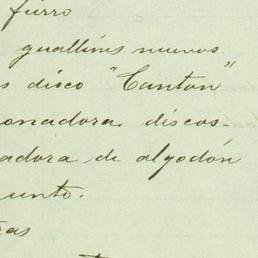 fierro
guallines nuevos.
s disco "Canton"
onadora discos.
adora de algodón
unto.
as